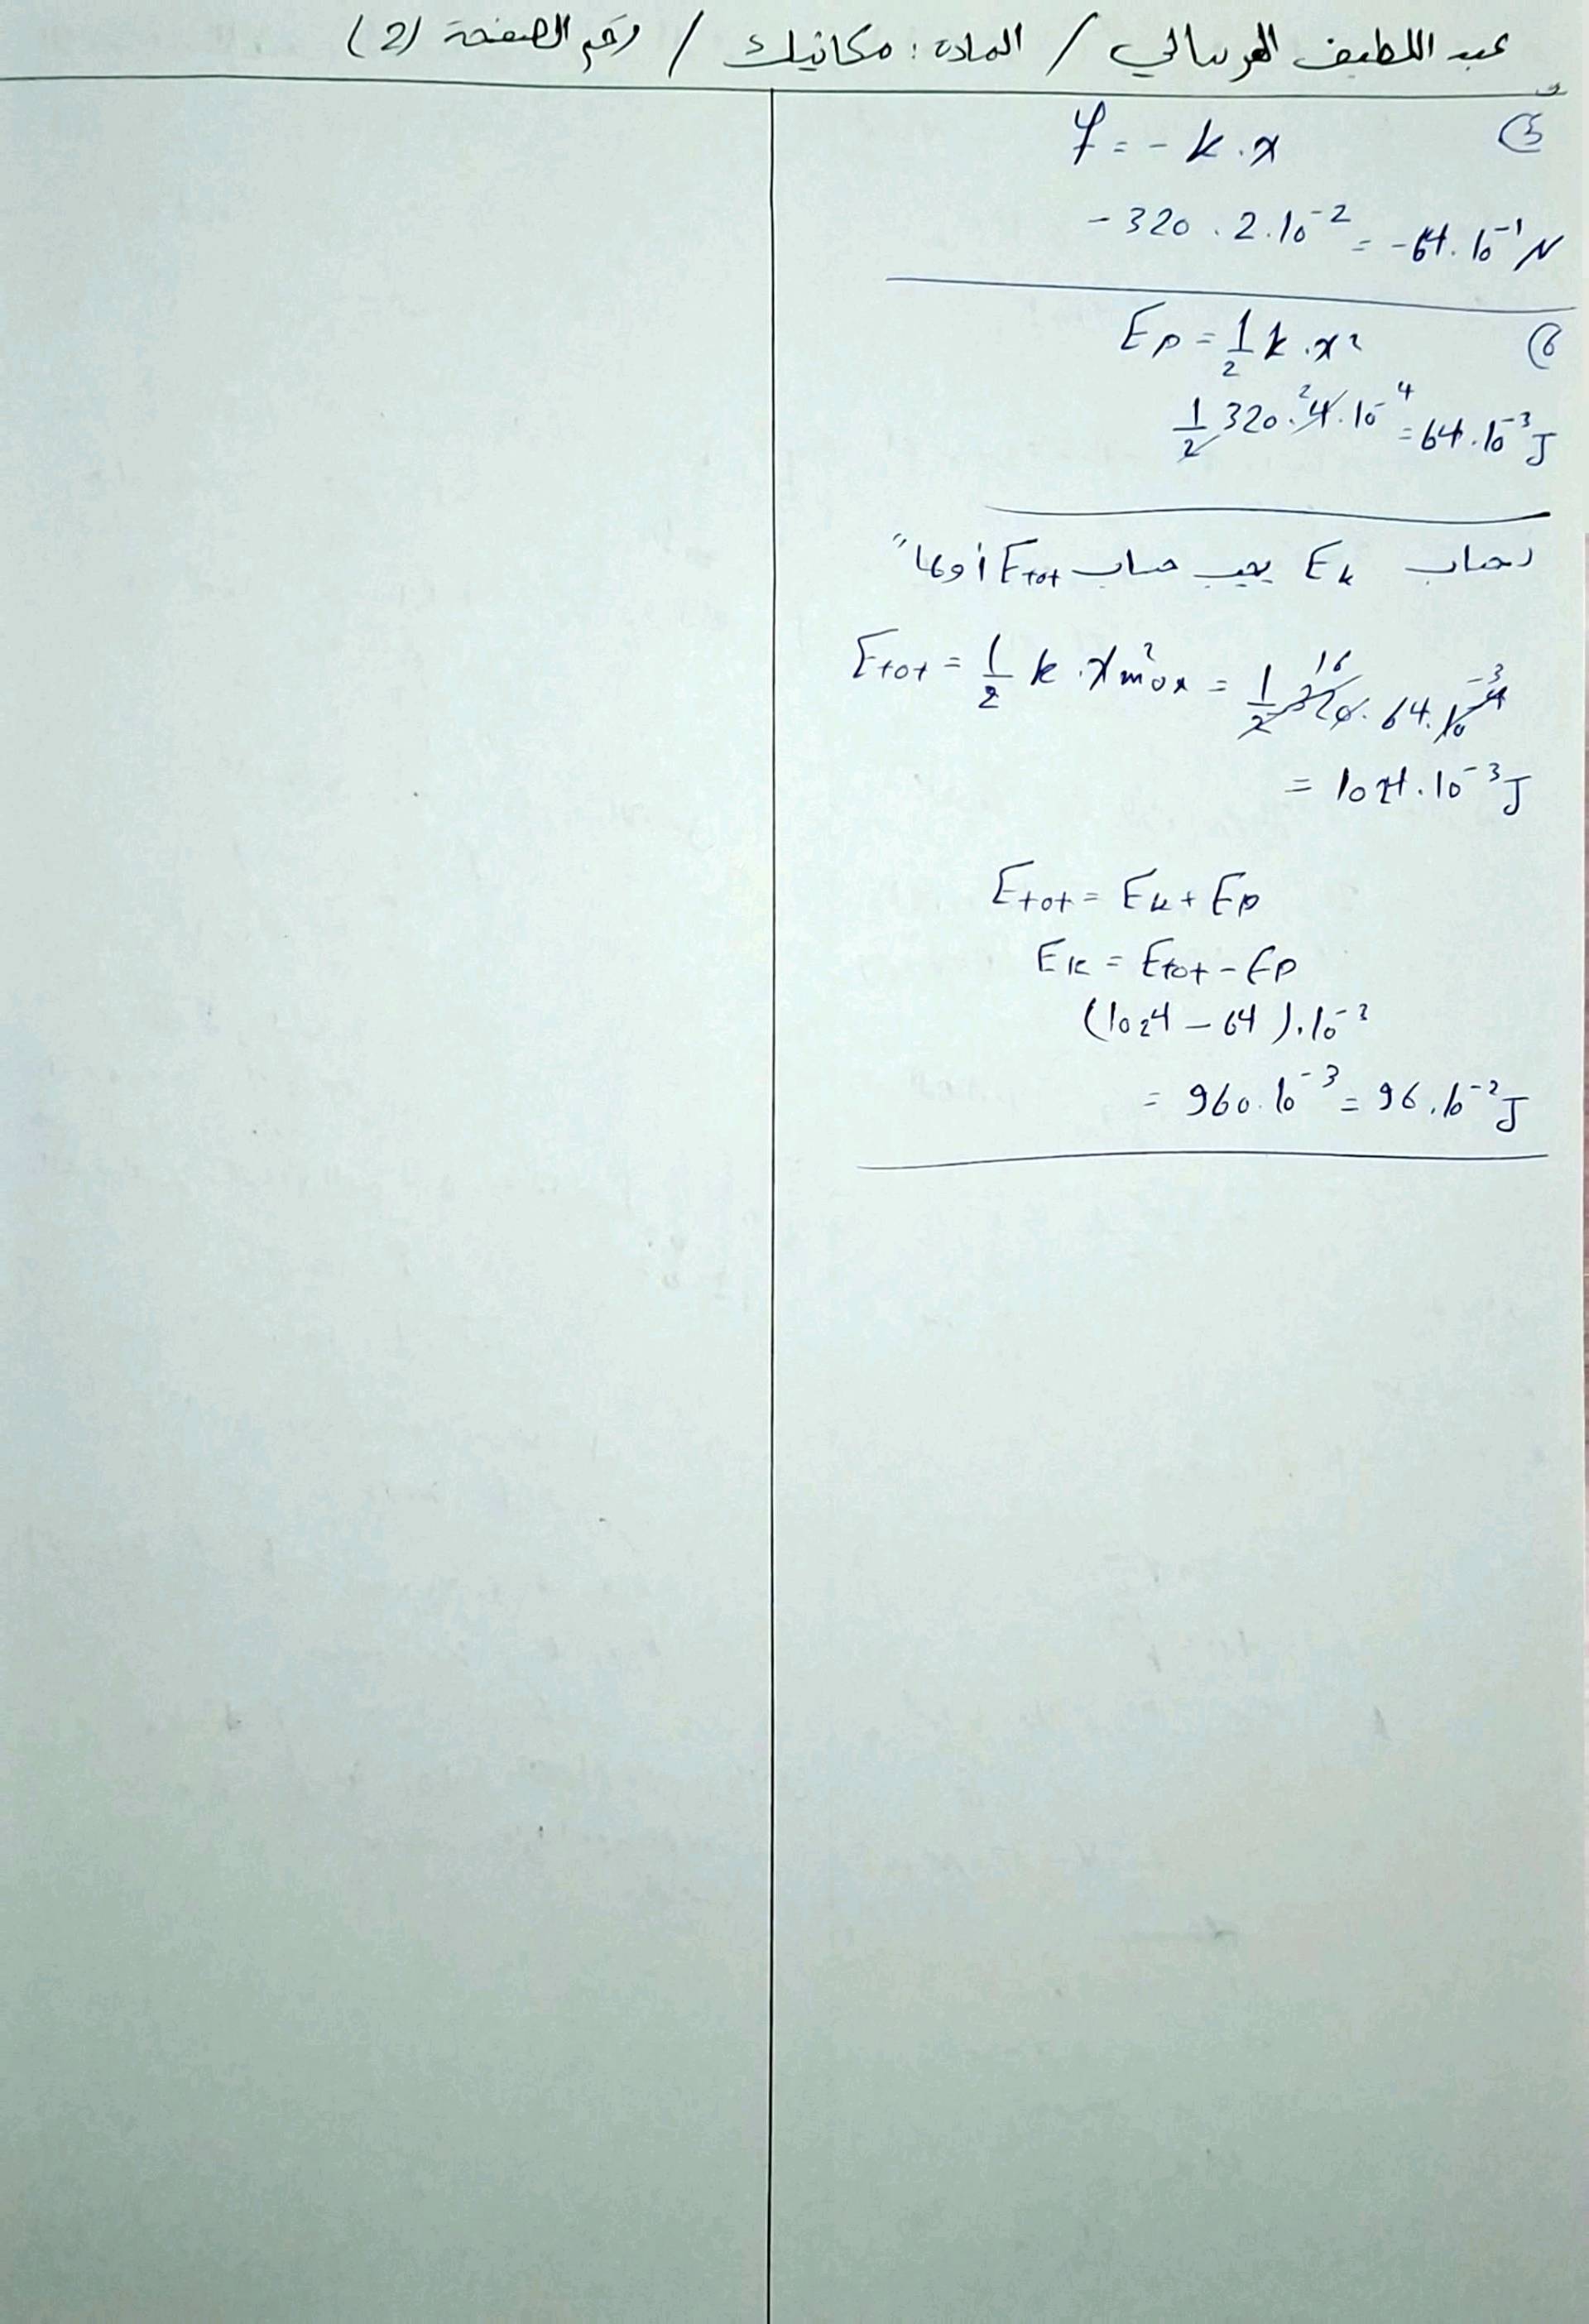 عبد اللطيف / المادة: مكانيك / رقم الصفحة (2)
5)
F = - k . x
- 320 . 2 . 10⁻² = - 64 . 10⁻¹ N
6)
Ep = 1/2 k . x²
1/2 320 . 4 . 10⁻⁴ = 64 . 10⁻³ J
لحساب Ek يجب حساب Etot أولاً
Etot = 1/2 k . x²max = 1/2 320 . 64 . 10⁻⁴
= 1024 . 10⁻³ J
Etot = Ek + Ep
Ek = Etot - Ep
(1024 - 64) . 10⁻³
= 960 . 10⁻³ = 96 . 10⁻² J